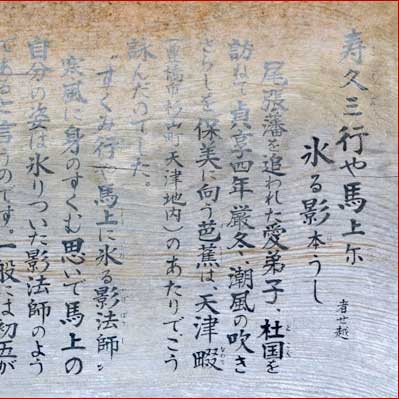 寿久三行や馬上尓
氷る影本うし
者せ越
尾張藩を追われた愛弟子、杜国を
訪ねて貞享四年厳冬、潮風の吹き
さらしを保美に向う芭蕉は、天津畷
(豊橋市杉山町天津地内)のあたりでこう
詠んだのでした。
"すくみ行や馬上に氷る影法師"
寒風に身のすくむ思いで馬上の
自分の姿は氷りついた影法師のよう
であると言うのです。一般には初五が